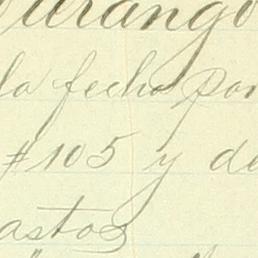 Durango
la fecha por
#105 y de
astos